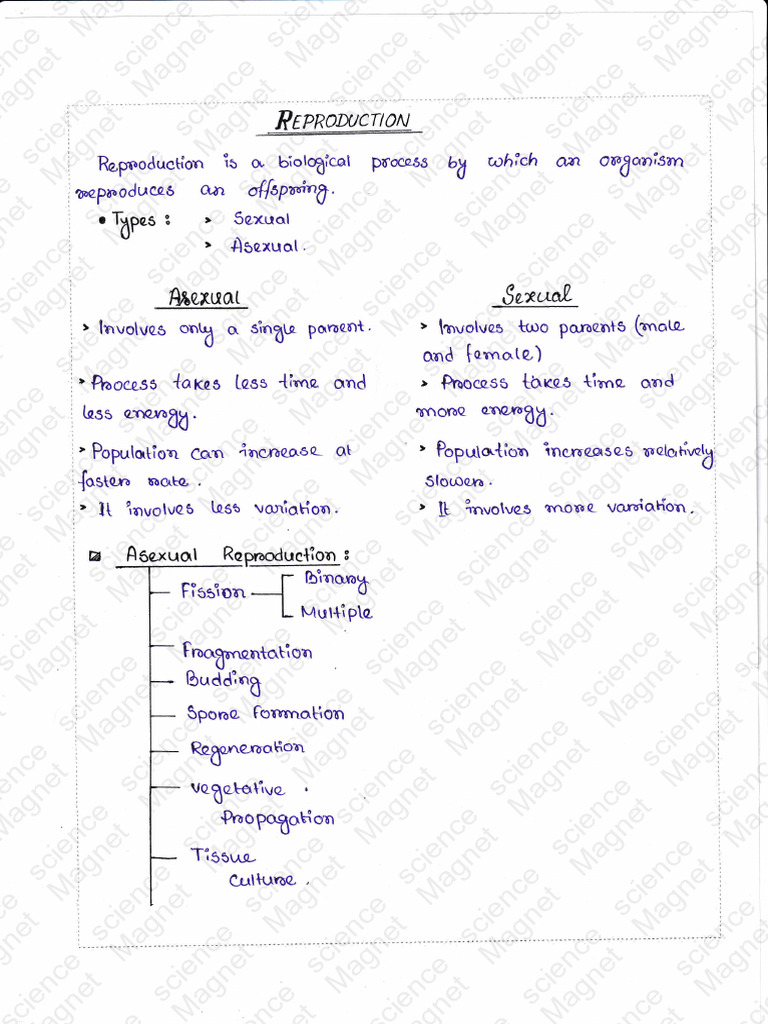 REPRODUCTION
Reproduction is a biological process by which an organism
reproduces an offspring.
• Types : > Sexual
> Asexual.
Asexual
Sexual
> Involves only a single parent.
> Involves two parents (male
and female)
> Process takes less time and
less energy.
> Process takes time and
more energy.
> Population can increase at
faster rate.
> Population increases relatively
slower.
> It involves less variation.
> It involves more variation.
Asexual Reproduction :
Fission
Binary
Multiple
Fragmentation
Budding
Spore formation
Regeneration
vegetative
Propagation
Tissue
Culture.
science Magnet